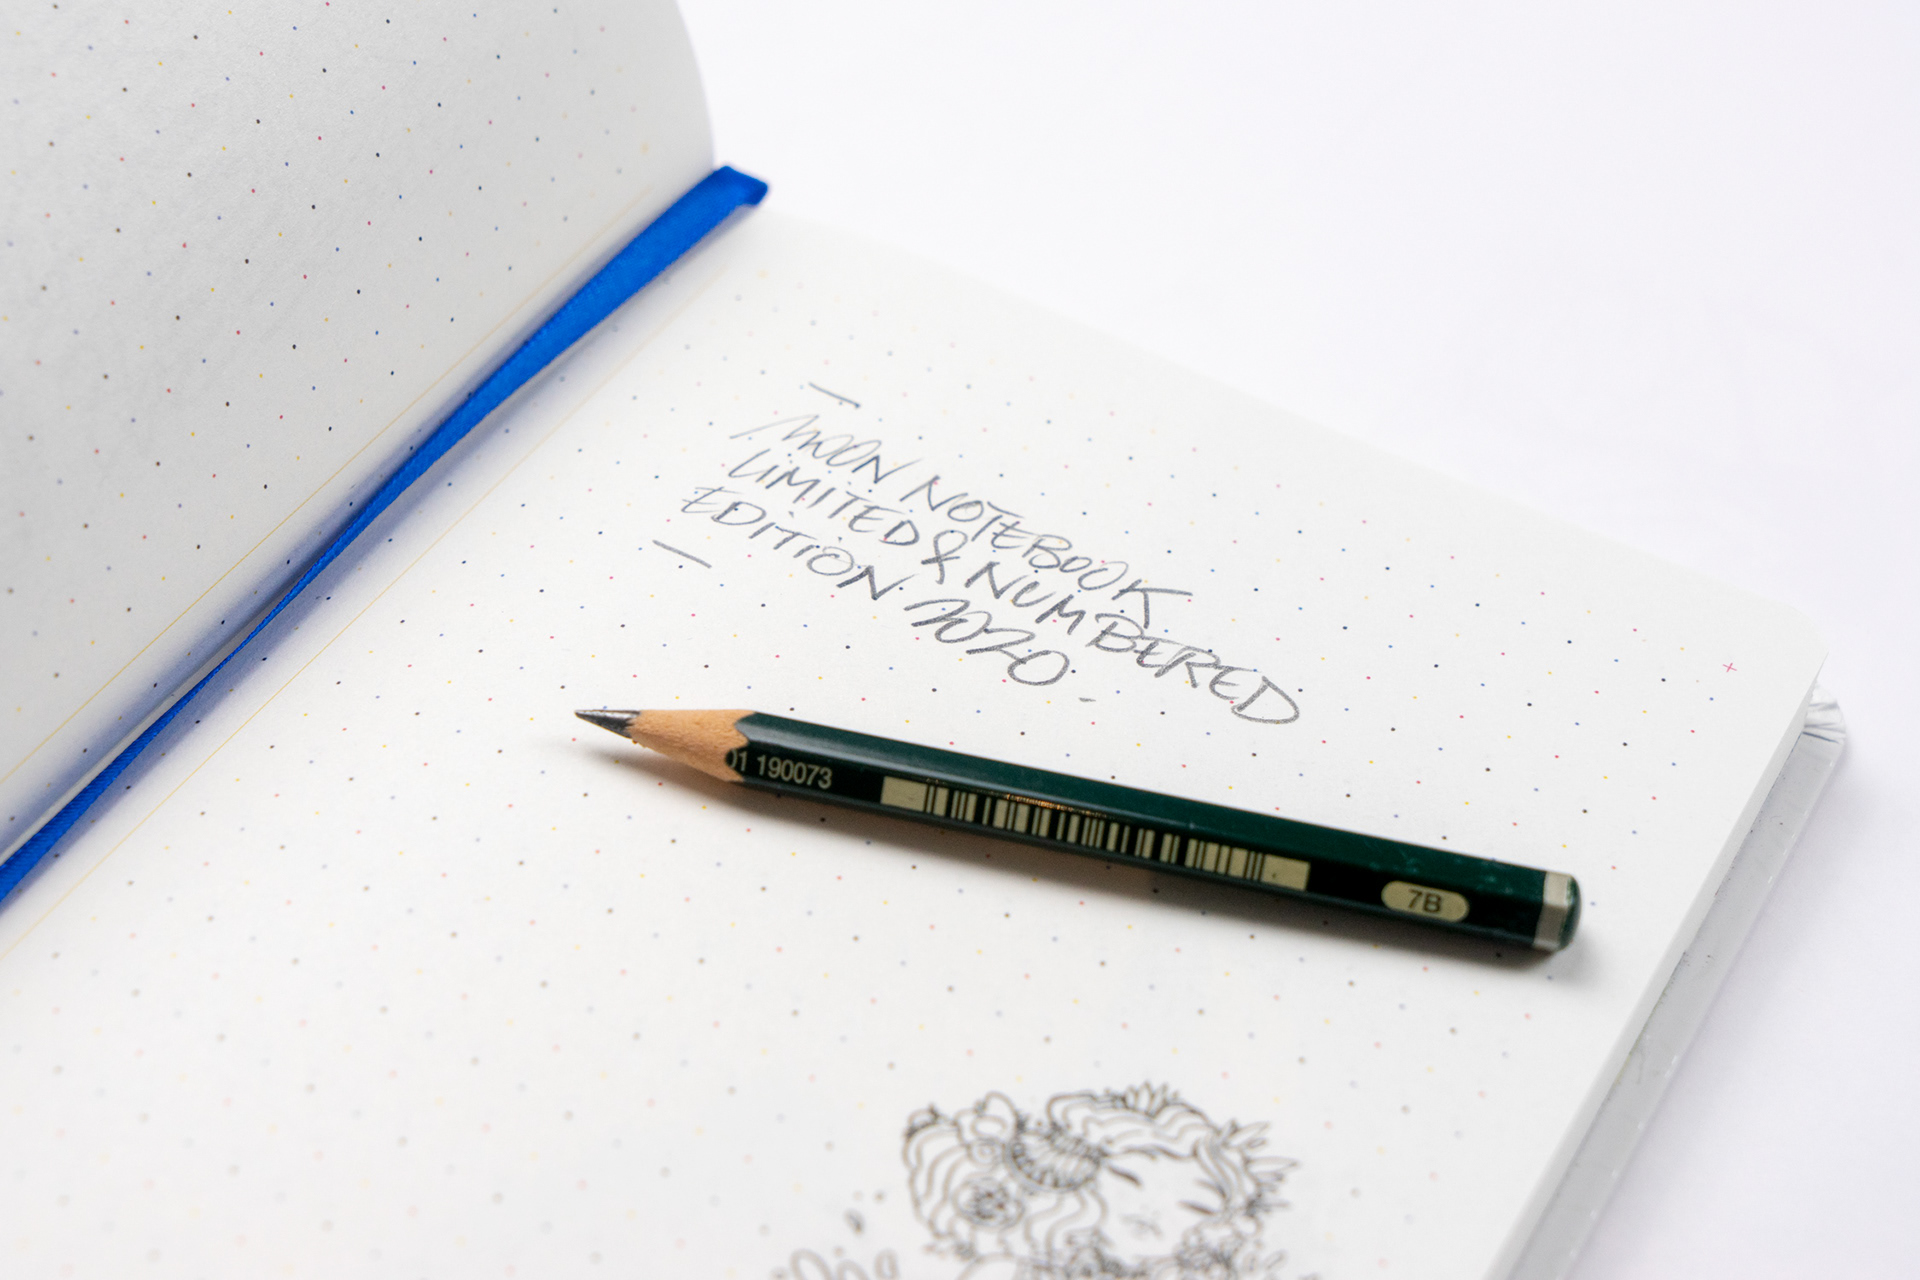 MOON NOTEBOOK
LIMITED & NUMBERED
EDITION 2020.
190073
7B